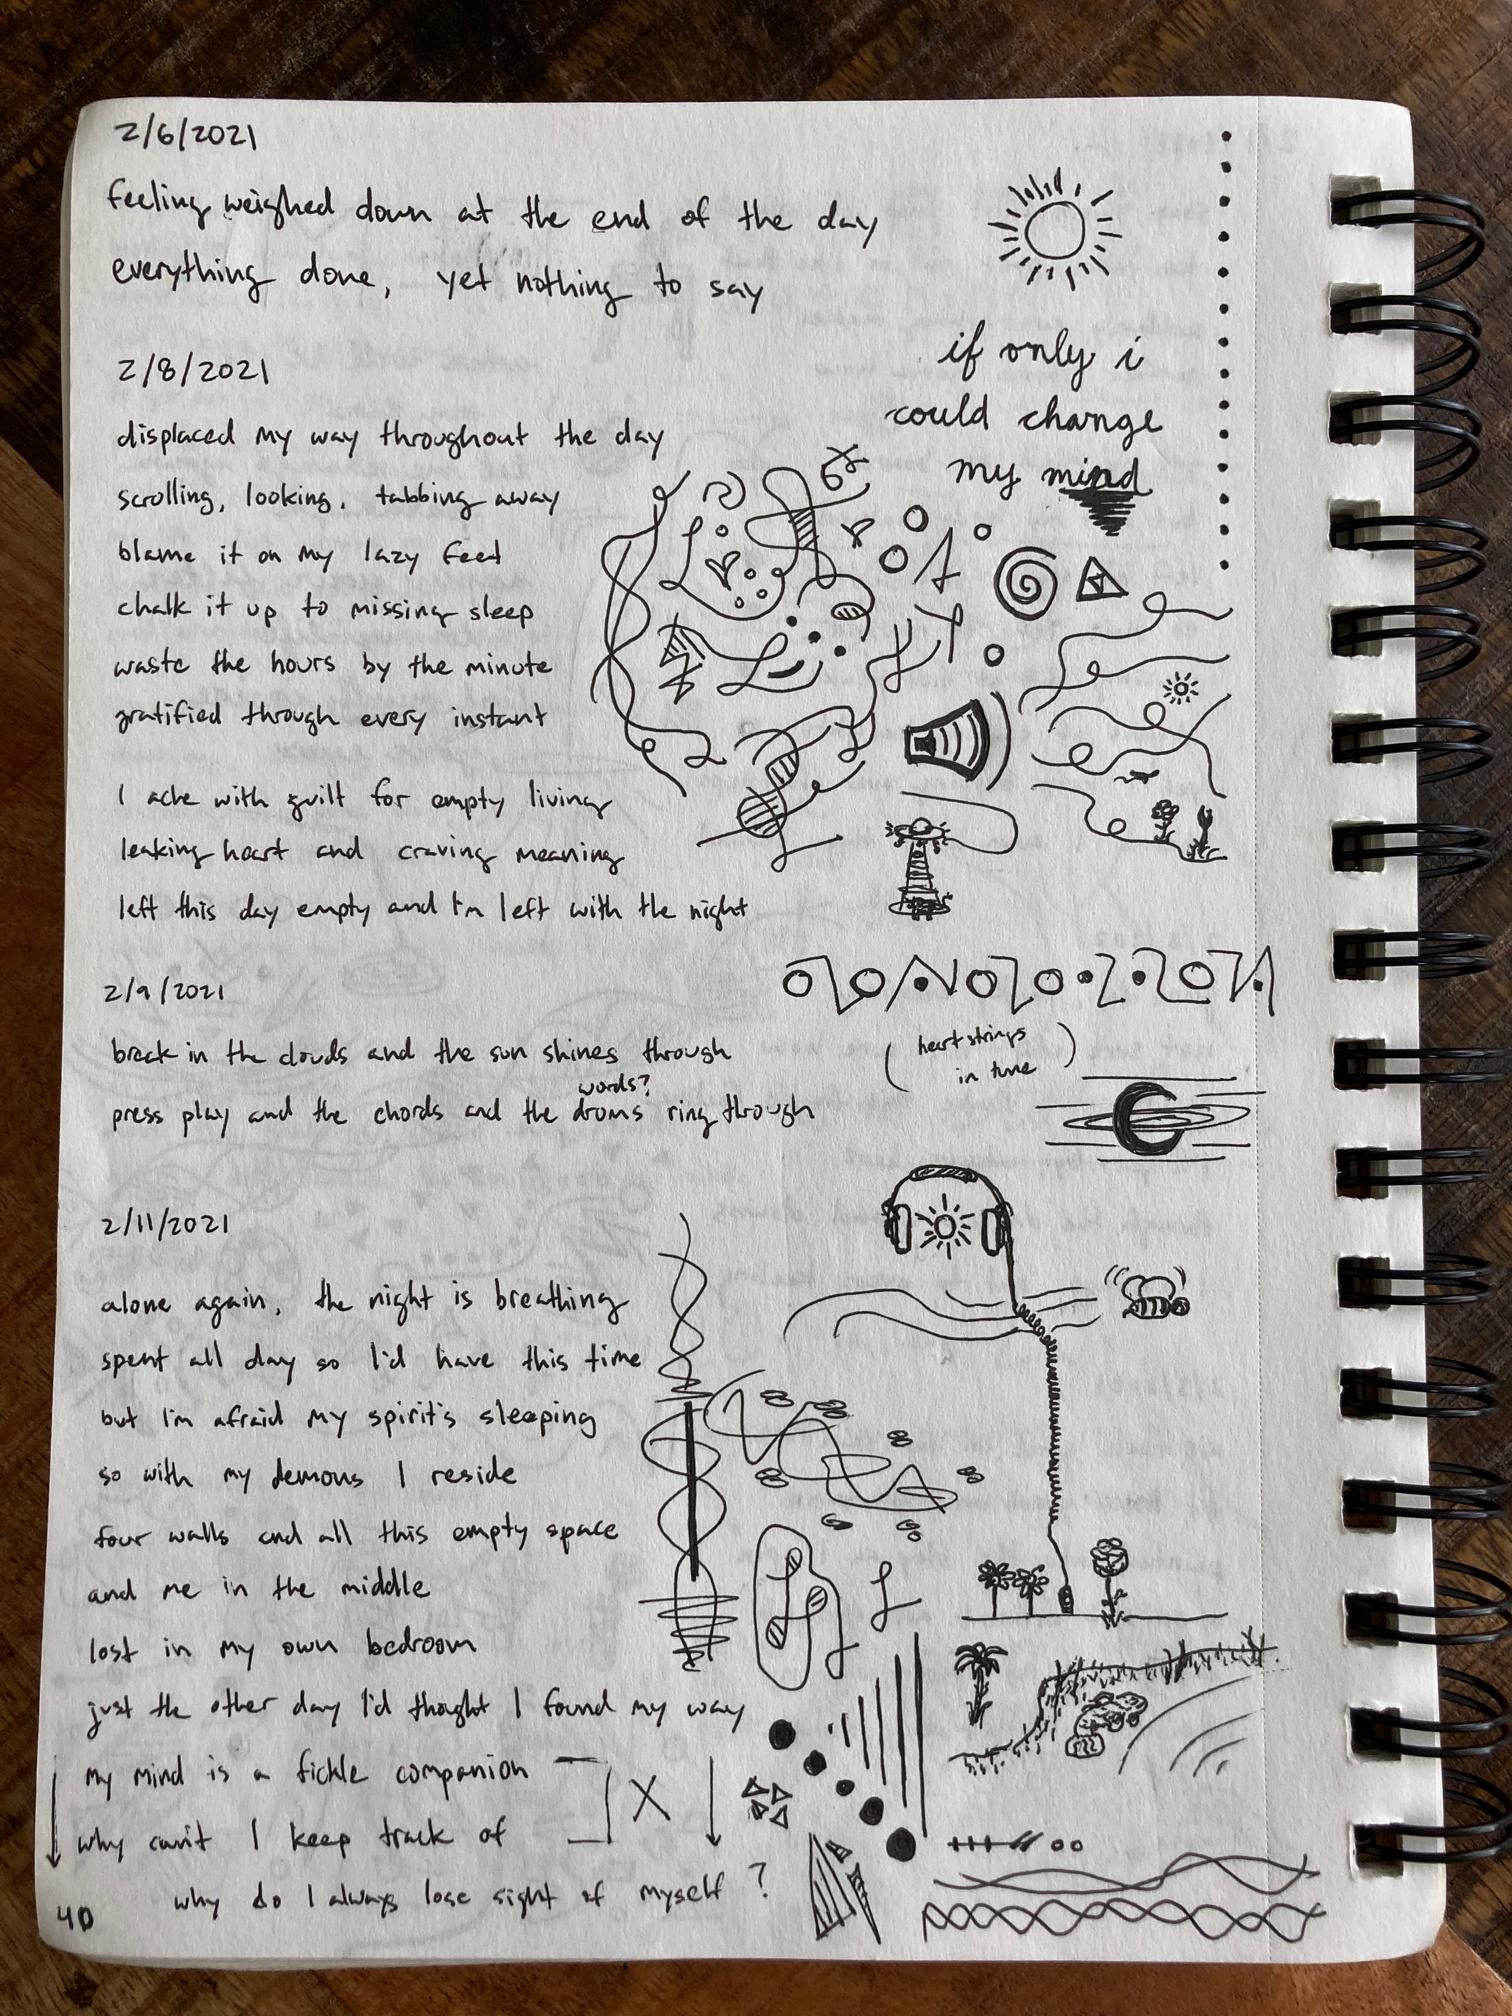 2/6/2021
feeling weighed down at the end of the day
everything done, yet nothing to say
if only i
could change
my mind
2/8/2021
displaced my way throughout the day
scrolling, looking, tabbing away
blame it on my lazy feed
chalk it up to missing sleep
waste the hours by the minute
gratified through every instant
I ache with guilt for empty living
leaking heart and craving meaning
left this day empty and I'm left with the night
2/9/2021
break in the clouds and the sun shines through
words?
press play and the chords and the drums ring through
(heart strings
in tune)
2/11/2021
alone again, the night is breathing
spent all day so I'd have this time
but I'm afraid my spirit's sleeping
so with my demons I reside
four walls and all this empty space
and me in the middle
lost in my own bedroom
just the other day I'd thought I found my way
my mind is a fickle companion
X
why can't I keep track of
why do I always lose sight of myself?
40